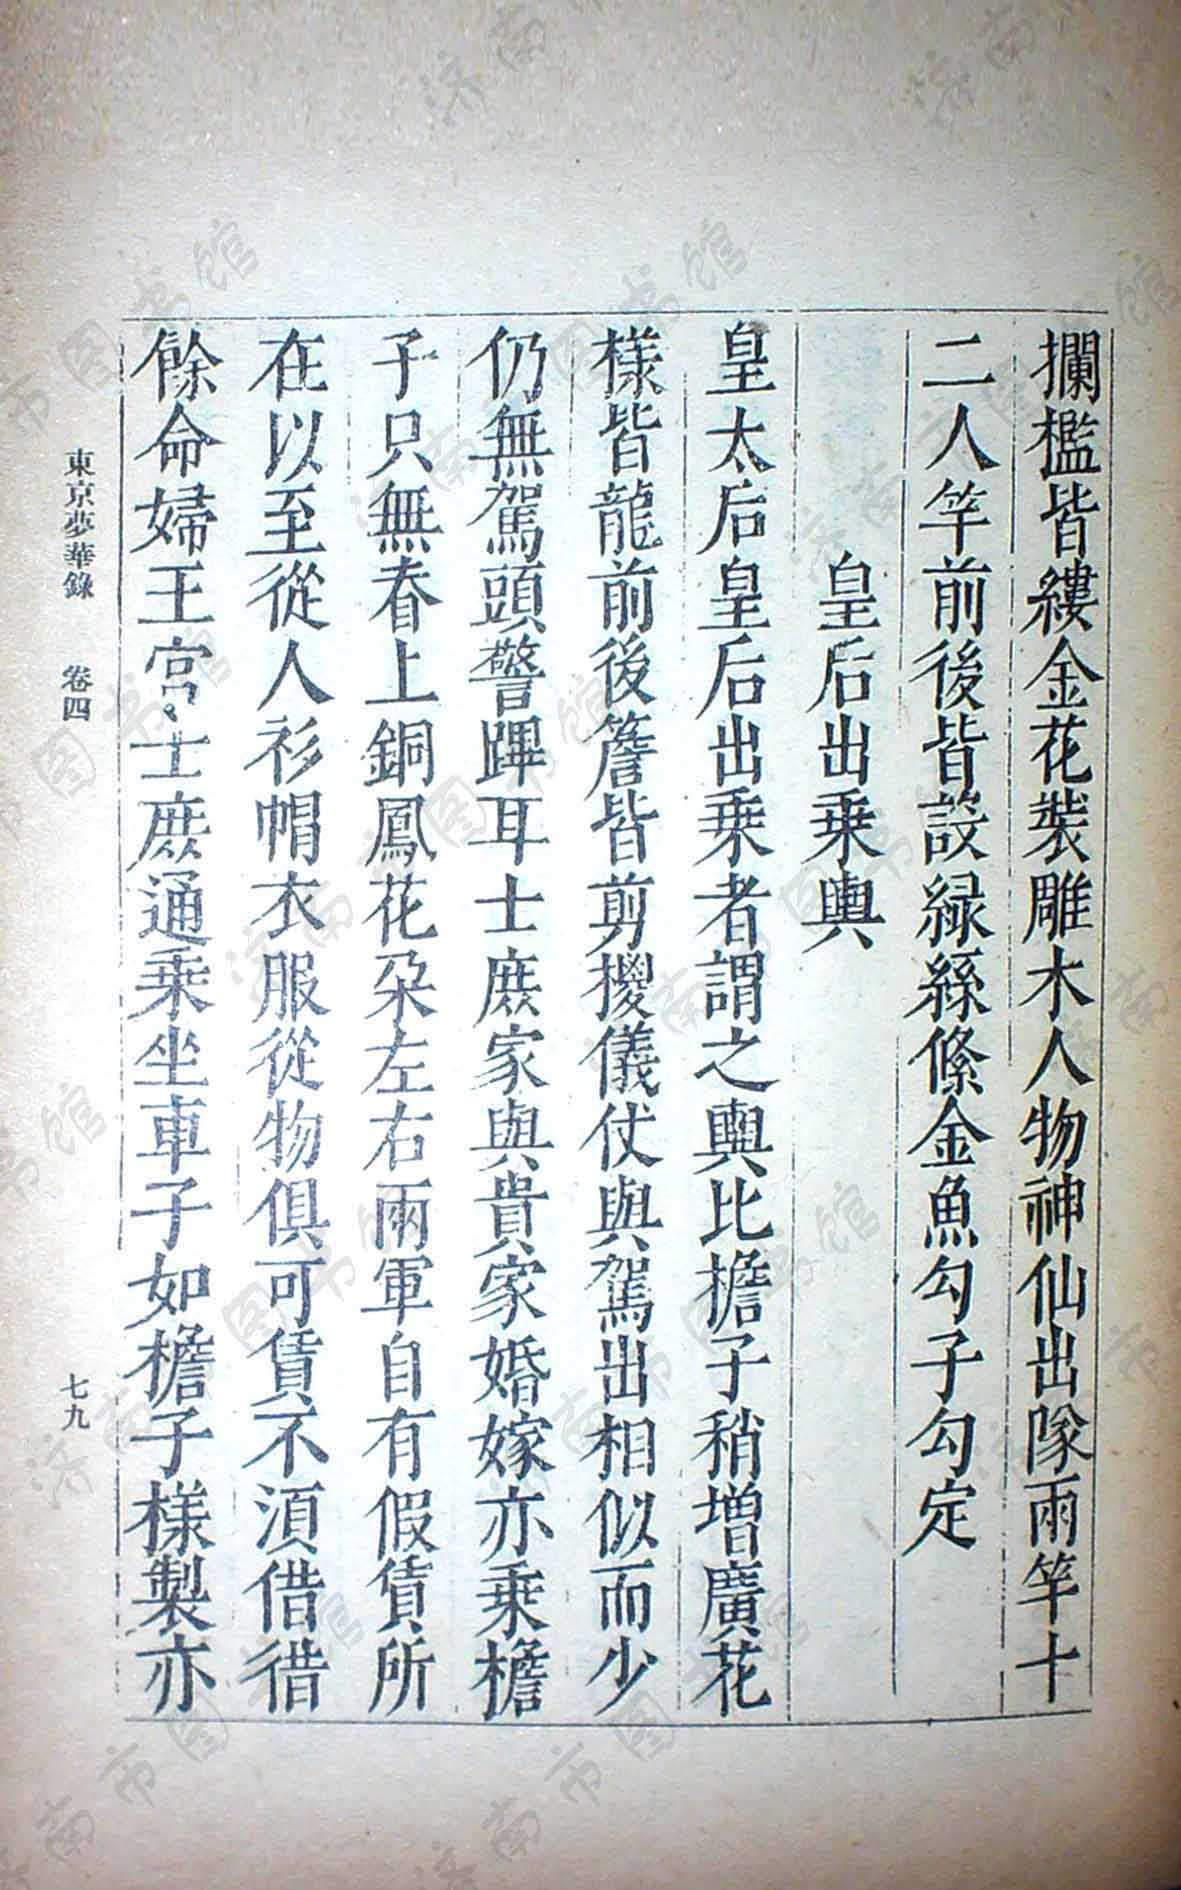 攔檻皆縷金花裝雕木人物神仙出隊兩竿十
二人竿前後皆設緑絲絛金魚勾子勾定
皇后出乗輿
皇太后皇后出乗者謂之輿比檐子稍增廣花
樣皆龍前後簷皆剪㮶儀仗與駕出相似而少
仍無駕頭警蹕耳士庶家與貴家婚嫁亦乗檐
子只無脊上銅鳳花朶左右兩軍自有假賃所
在以至從人衫帽衣服從物俱可賃不須借借
餘命婦王宮士庶通乗坐車子如檐子樣製亦
東京夢華錄 卷四 七九
济南市图书馆